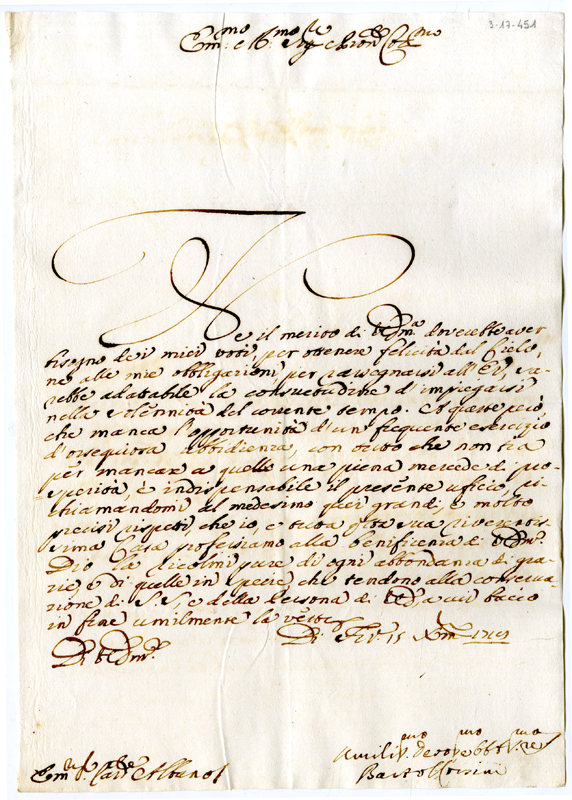 3-17-451
Em.mo e R.mo Sig.re Pron Col.mo
Se il merito di V. Em.a dovesse aver
bisogno dei miei voti, per ottenere felicità dal Cielo,
ne alle mie obbligazioni, per rassegnarsi all' E.V., sa-
rebbe adattabile la consuetudine d'impiegarsi
nella solennità del corrente tempo. A questo però,
che manca l'opportunità d'un frequente esercizio
d'ossequiosa obbidienza, con tutto che non sia
per mancare a quello una piena mercede di pro-
sperità, è indispensabile il presente uficio, ri-
chiamandomi al medesimo quei grandi, e molto
precisi rispetti, che io, e tutta q.ta sua riverentis-
sima Casa professiamo alla beneficenza di V. Em.a
Dio la ricolmi pure di ogni abbondanza di gra-
zie, e di quelle in specie, che tendono alla conserva-
zione di S. S., e della Persona di V.E., a cui bacio
in fine umilmente la veste.
Di V. Em.a
Di Fir.e 15 Xm.e 1719
Em.o S. Card.e Albani
Umiliss.mo Devo.mo Obb.mo Ser.re
Barto Corsini